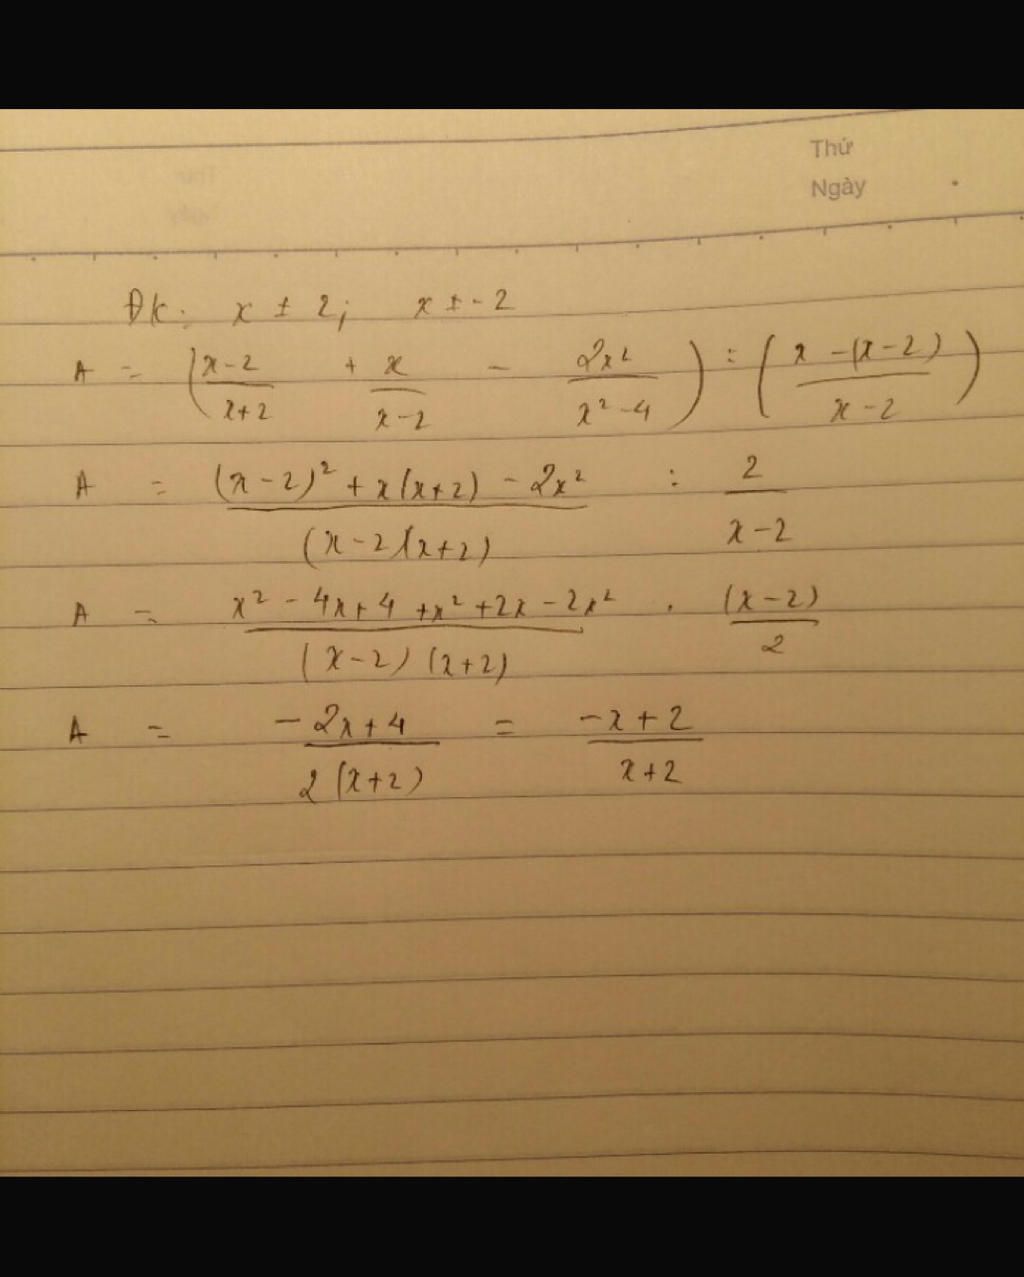 Thứ
Ngày
Đk: x ± 2; x ± -2
A = ( (x-2)/(x+2) + x/(x-2) - 2x²/(x²-4) ) : ( (x-(x-2))/(x-2) )
A = ((x-2)² + x(x+2) - 2x²)/((x-2)(x+2)) : 2/(x-2)
A = (x² - 4x + 4 + x² + 2x - 2x²)/((x-2)(x+2)) . (x-2)/2
A = (-2x+4)/(2(x+2)) = (-x+2)/(x+2)